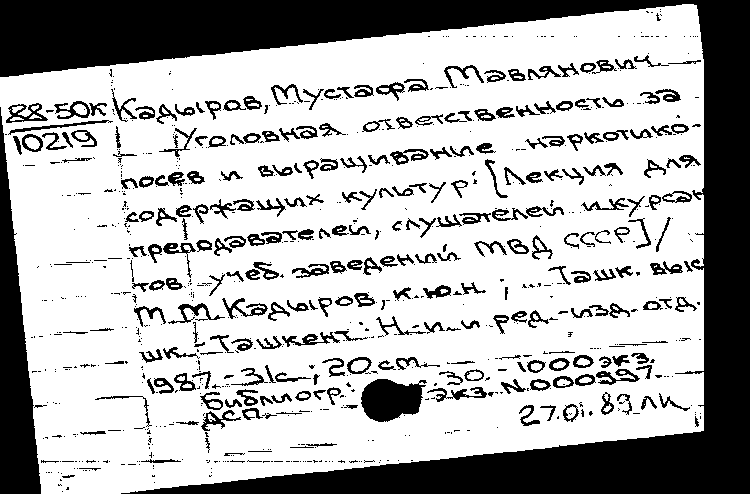 88-50к Кадыров, Мустафа Мавлянович
10219 Уголовная ответственность за
посев и выращивание наркотико-
содержащих культур: [Лекция для
преподавателей, слушателей и курсан
тов учеб. заведений МВД СССР] /
М. М. Кадыров, к.ю.н. ; ... Ташк. выс
шк. - Ташкент : Н.-и. и ред.-изд. отд.
1987. - 31с. ; 20 см.
Библиогр.: с. 30. - 1000 экз.
ДСП. экз. N.000997.
27.01.89 лк